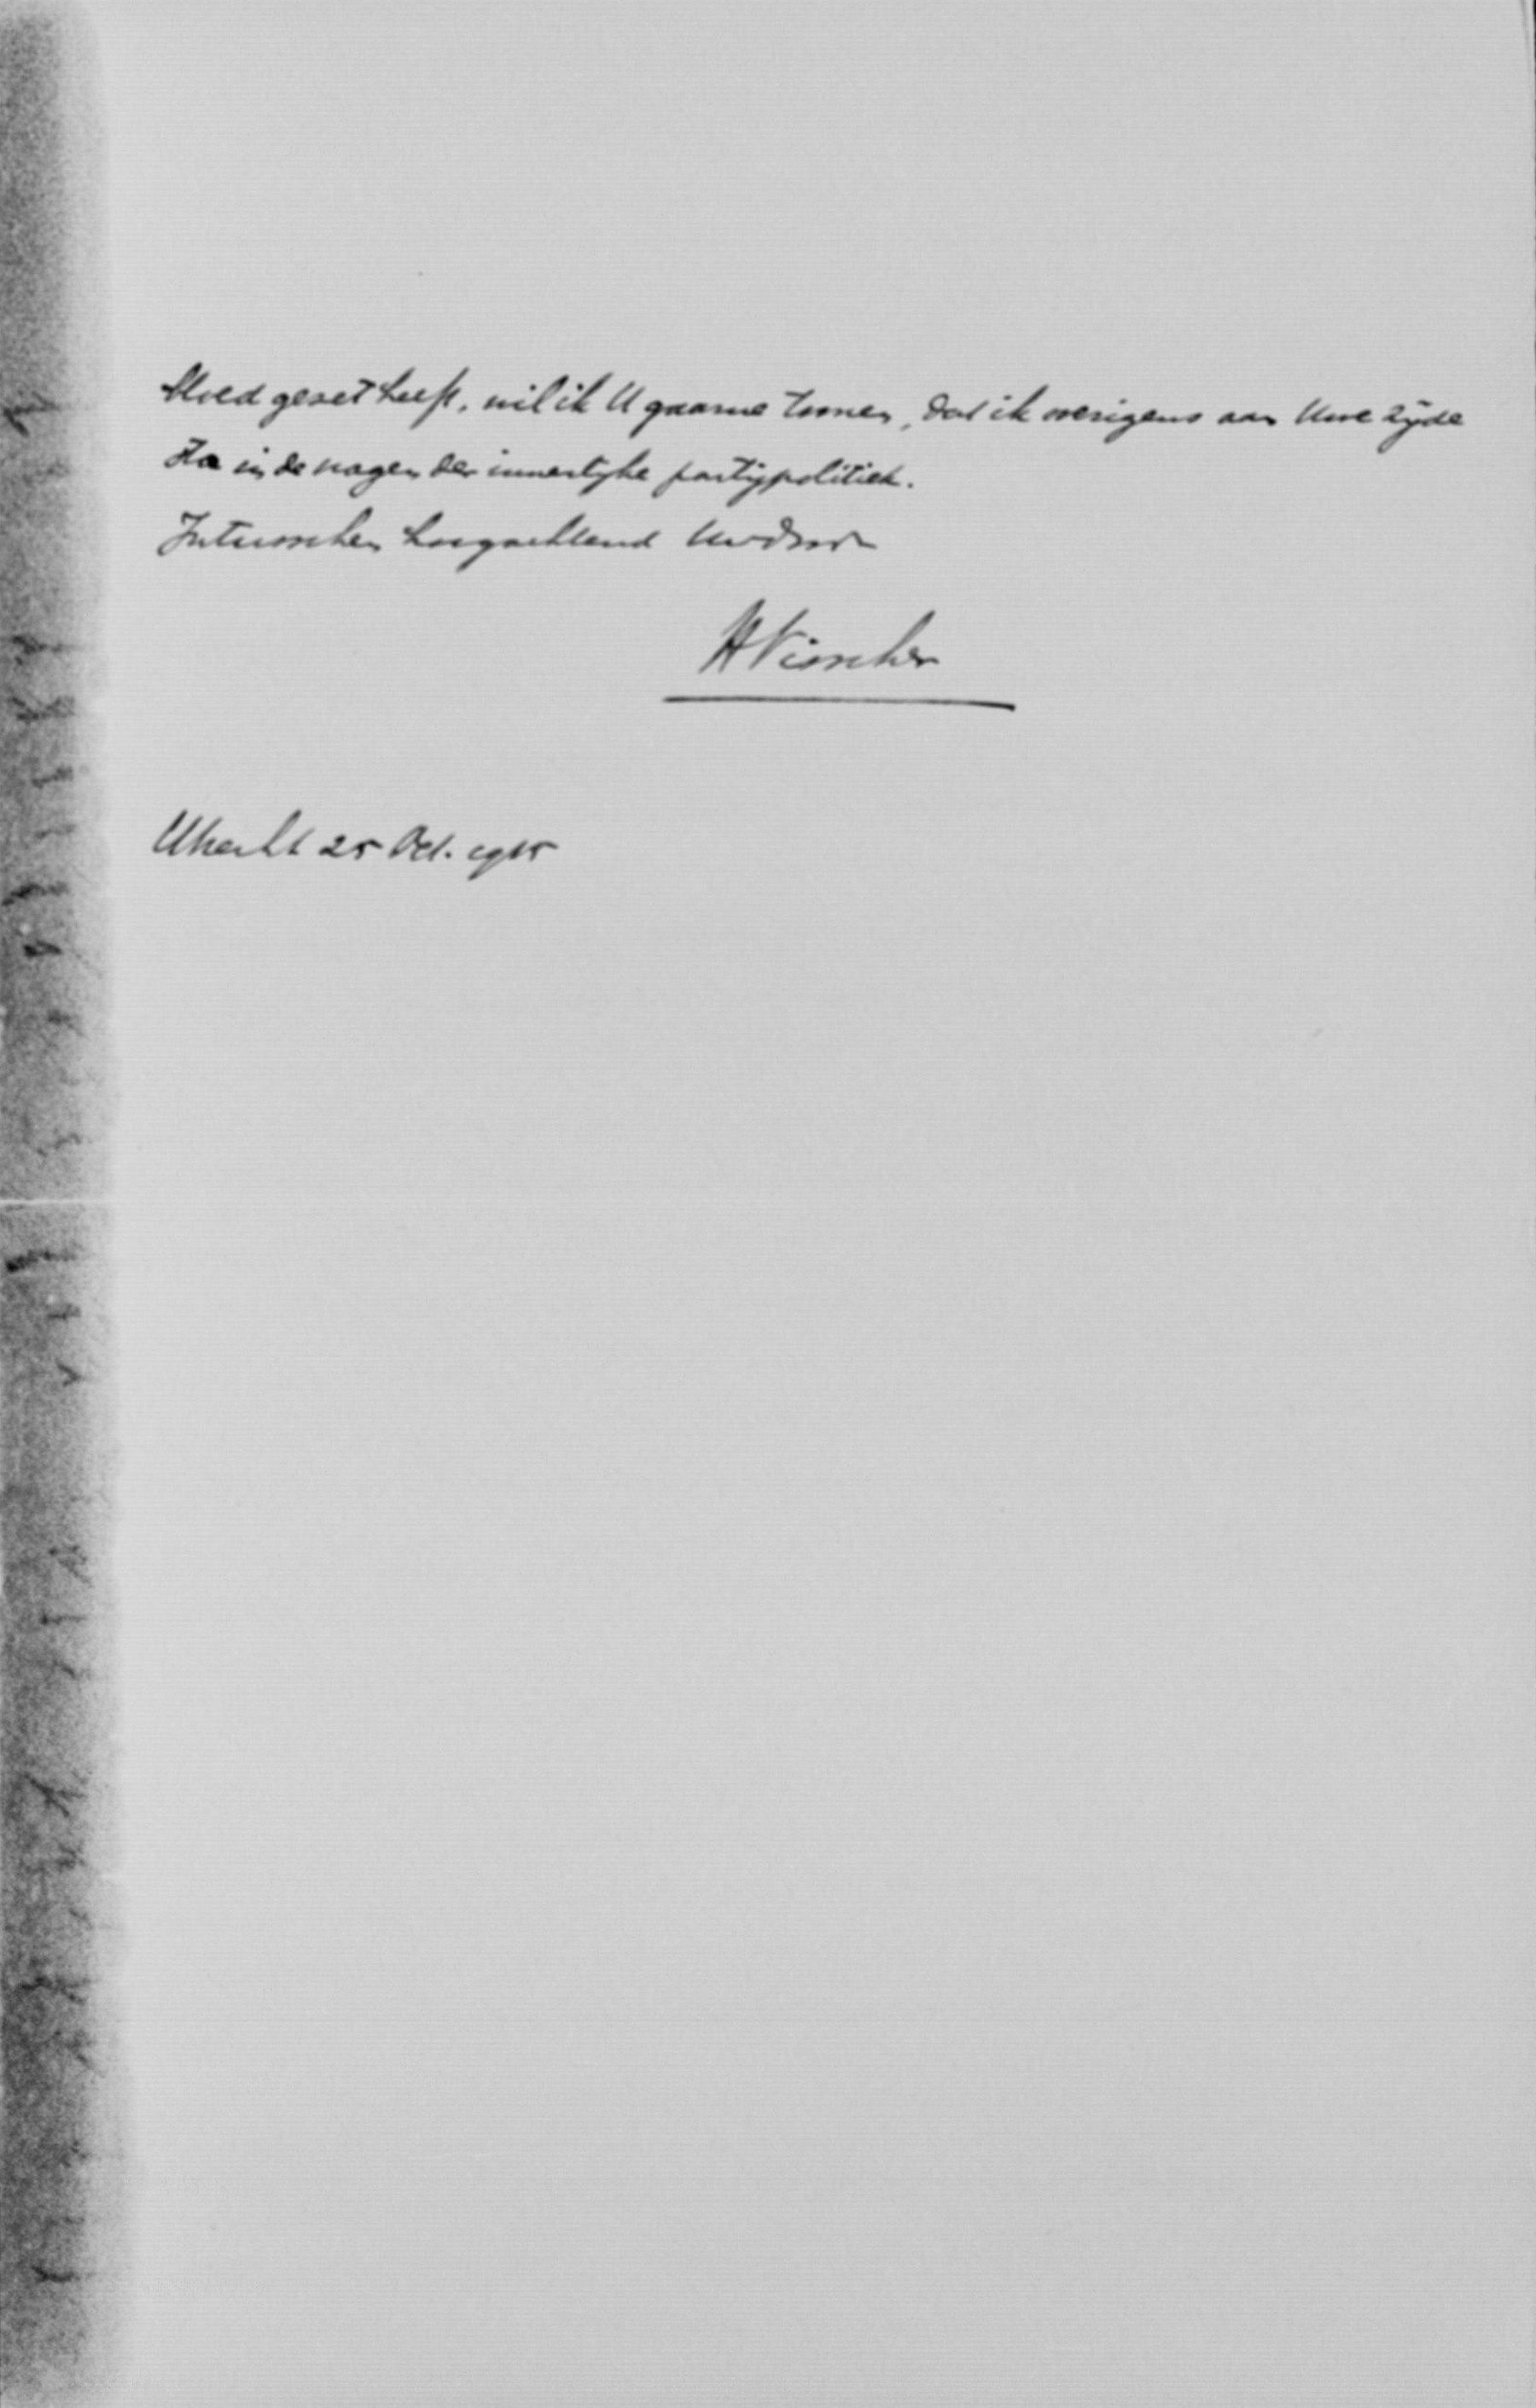 bloed gezet heeft, wil ik U gaarne toonen, dat ik overigens aan Uwe zijde
sta in de vragen der innerlijke partijpolitiek.
Intusschen hoogachtend Uwdnr
HVisscher
Utrecht 25 Oct. 1915